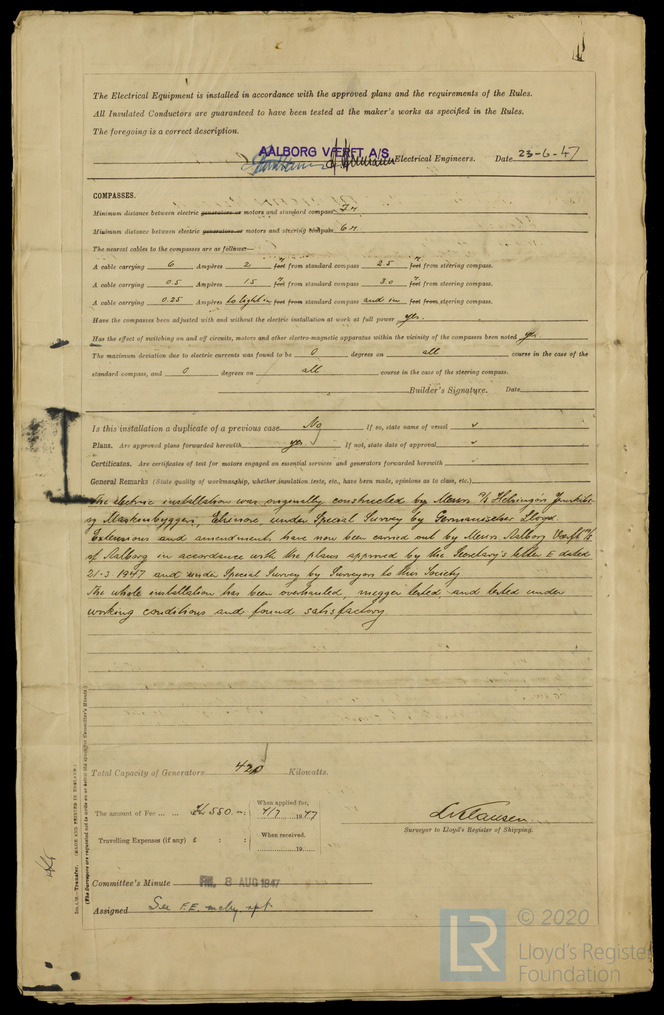 The Electrical Equipment is installed in accordance with the approved plans and the requirements of the Rules.
All Insulated Conductors are guaranteed to have been tested at the maker's works as specified in the Rules.
The foregoing is a correct description.
AALBORG VÆRFT A/S
Electrical Engineers. Date 23-6-47
COMPASSES.
Minimum distance between electric generators or motors and standard compass 7 m
Minimum distance between electric generators or motors and steering compass 6 m
The nearest cable to the compasses are as follows:—
A cable carrying 6 Ampères 2 feet from standard compass 2.5 feet from steering compass.
A cable carrying 0.5 Ampères 1.5 feet from standard compass 3.0 feet from steering compass.
A cable carrying 0.25 Ampères to light in feet from standard compass and in feet from steering compass.
Have the compasses been adjusted with and without the electric installation at work at full power yes.
Has the effect of switching on and off circuits, motors and other electro-magnetic apparatus within the vicinity of the compasses been noted yes
The maximum deviation due to electric currents was found to be 0 degrees on all course in the case of the
standard compass, and 0 degrees on all course in the case of the steering compass.
Builder's Signature. Date
Is this installation a duplicate of a previous case No If so, state name of vessel
Plans. Are approved plans forwarded herewith yes If not, state date of approval
Certificates. Are certificates of test for motors engaged on essential services and generators forwarded herewith
General Remarks (State quality of workmanship, whether insulation tests, etc., have been made, opinions as to class, etc.)
The electric installation was originally constructed by Messrs A/S Helsingörs
og Maskinbyggeri, Elsinore, under Special Survey by Germanischer Lloyd
Extensions and amendments have now been carried out by Messrs Aalborg Værft A/S
of Aalborg in accordance with the plans approved by the Secretary's letter E dated
21-3 1947 and under Special Survey by Surveyors to this Society
The whole installation has been overhauled, megger tested and tested under
working conditions and found satisfactory
Total Capacity of Generators 420 Kilowatts.
The amount of Fee ... ... Kr 550.— : When applied for, 4/7 1947
Travelling Expenses (if any) £ : : When received, 19
Surveyor to Lloyd's Register of Shipping.
Committee's Minute FRI. 8 AUG 1947
Assigned See F.E. rpt
(MADE AND PRINTED IN ENGLAND.)
(The Surveyors are requested not to write on or below the space for Committee's Minute.)
LR
© 2020
Lloyd's Register
Foundation